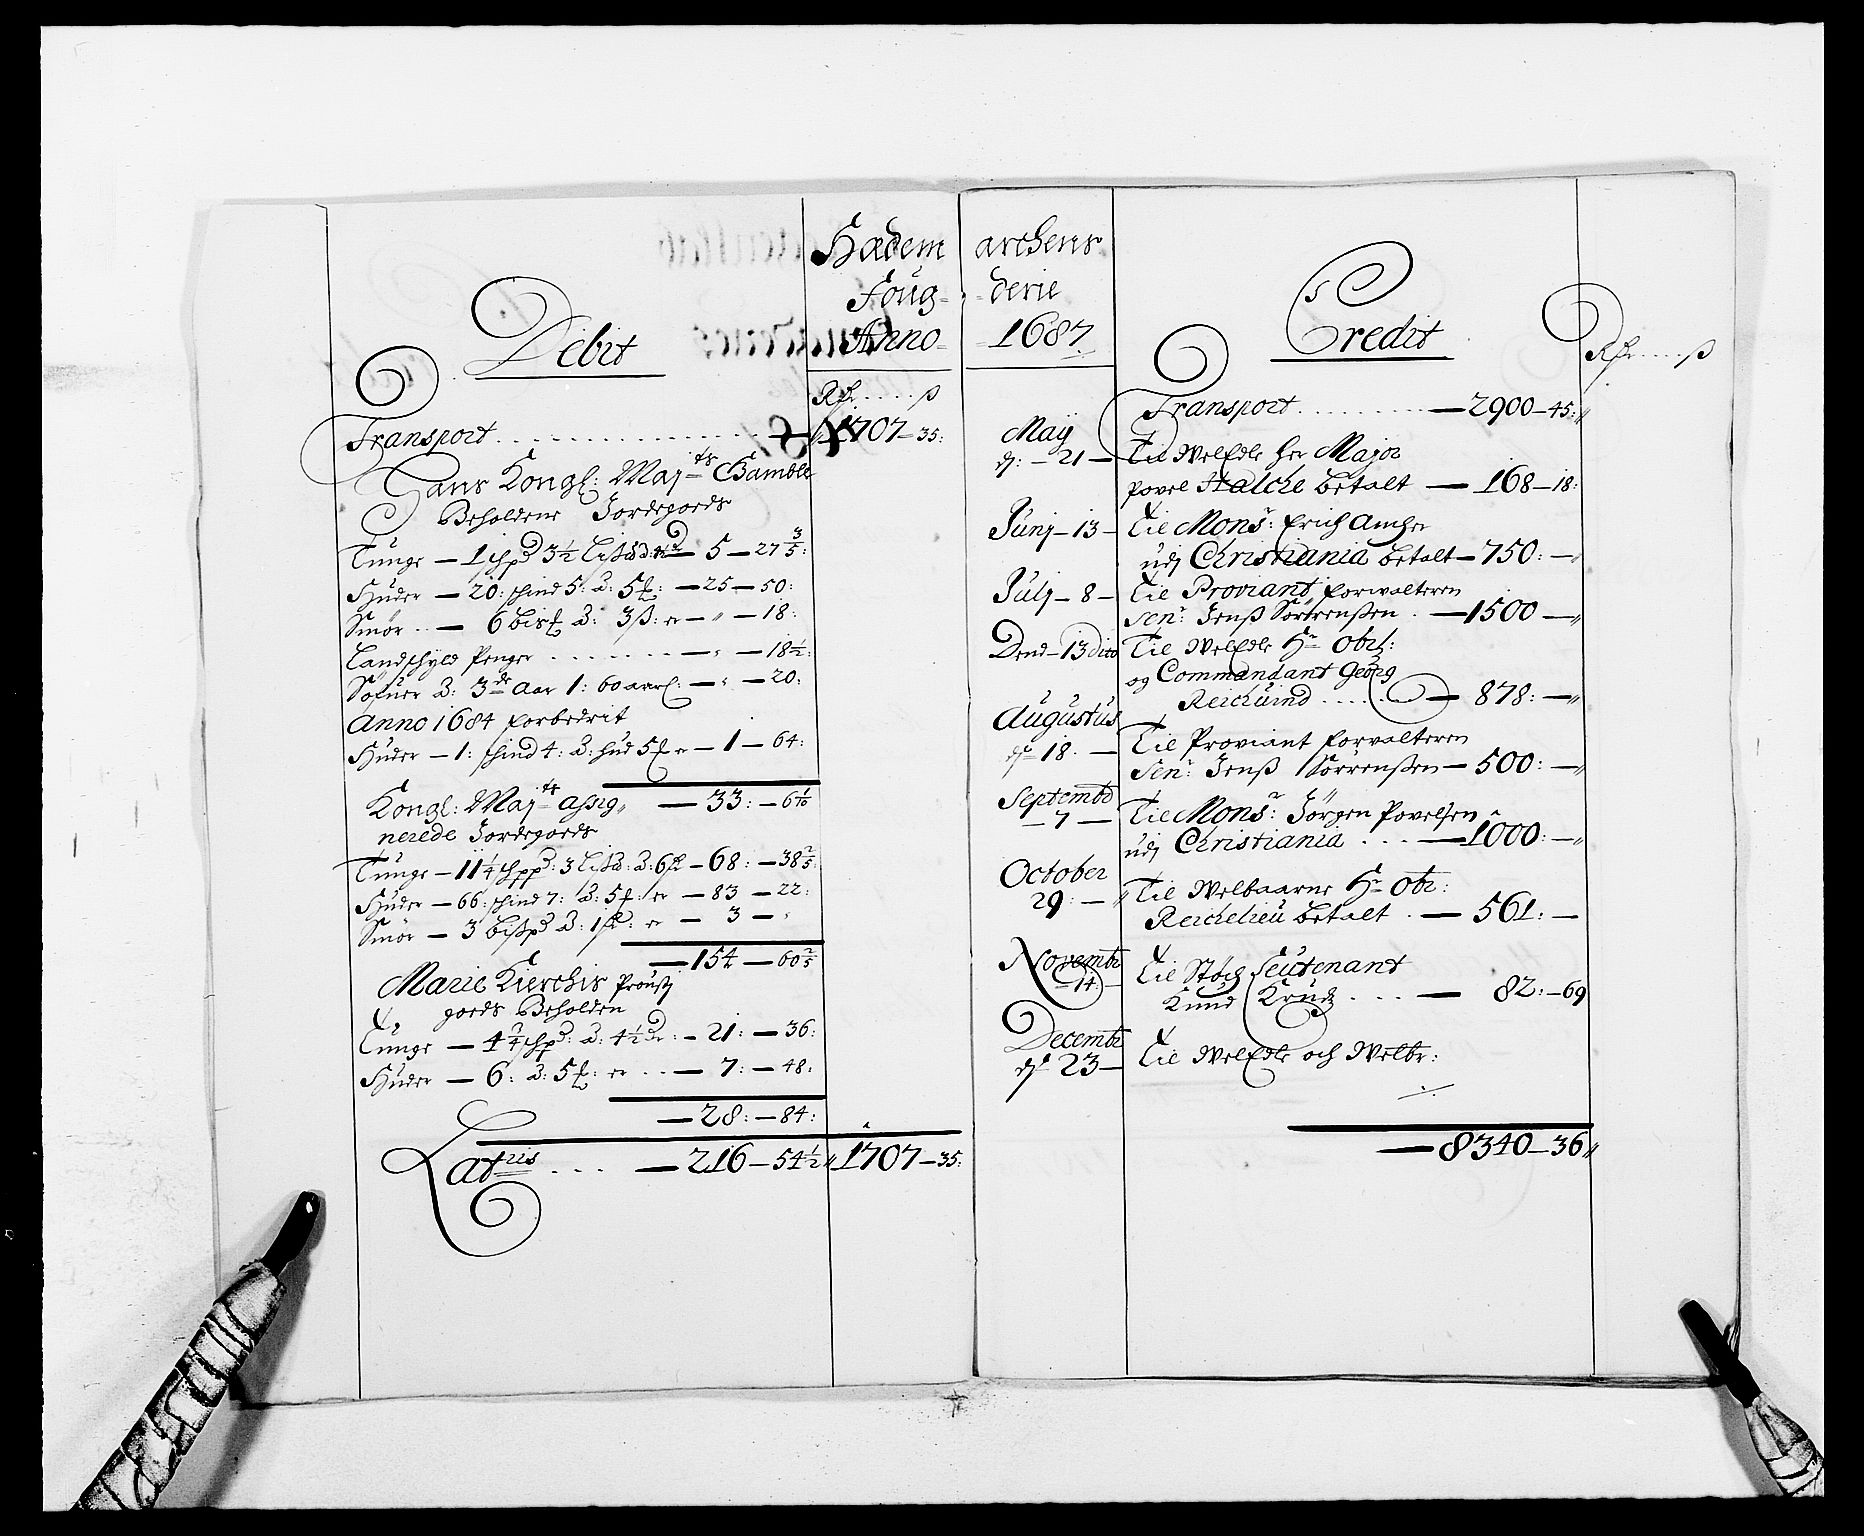 Hædem archens
Foug- derie
Anno 1687
Debit
Rdr ..... ß
Transport ........ 1707 - 35:
Hans Kongl: Maj ts Bamble
Beholdene Jordegods
Tunge - 1 schpd 3½ Lispd - 5 - 27 3/5:
Huder - 20: schind 5: a: 5 - 25 - 50:
Smør .. - 6 bis a: 3 ß: er - " - 18:
Landschyld Penger ....... - " - 18½:
3de Aar 1: 60 - " - 20:
Anno 1684 forbedrit
Huder - 1: schind 4: a: hud 5 er - 1 - 64:
Kongl: Maj ts assig,, - 33: - 6 1/10
nerede Jordegods
Tunge - 11¼ schpd: 3 Lispd: a: 6 - 68: - 38 2/5:
Huder - 66: schind 7: a: 5: er - 83 - 22:
Smør - 3 bispd a: 1: er - 3 - "
- 154 - 60 2/5
Marie Kierchis Proustj
gods Beholden
Tunge - 4¾ schpd: a: 4½ - 21: - 36:
Huder - 6: a: 5: er .. - 7: - 48:
- 28: - 84:
Lat ris ... - 216 - 54½ " 1707 - 35:
Credit
Rdr ..... ß
Transport ........ - 2900 - 45: "
Maij
d: - 21 - Til WelEdle Her Major
Povel Halche betalt - 168 - 18:
Junj - 13 - Til Monsr: Erich Ancher
udj Christiania betalt - 750: - "
Julj - 8 - Til Proviant forwalteren
Senr Jenß Sörrenßen . - 1500 - "
Dend - 13 dito Til WelEdle Hr Obrl:
og Commandant Georg
Reichuind ..... - 878: - "
Augustus
d 18. - Til Proviant forvalteren
Senr: Jenß Sörrenßen - 500: - "
Septembr
- 7 - Til Monsr: Jörgen Povelsen
udj Christiania ... - 1000: - "
October
29: - " Til Welbaarne Hr Obr:
Reichelieu betalt . - 561: -
Novembr
- 14: - Til Støch Leutenant
Knud Krudz ... - 82: - 69
Decembr
d 23 - Til WelEdle och Welbr:
./.
- 8340 - 36 "